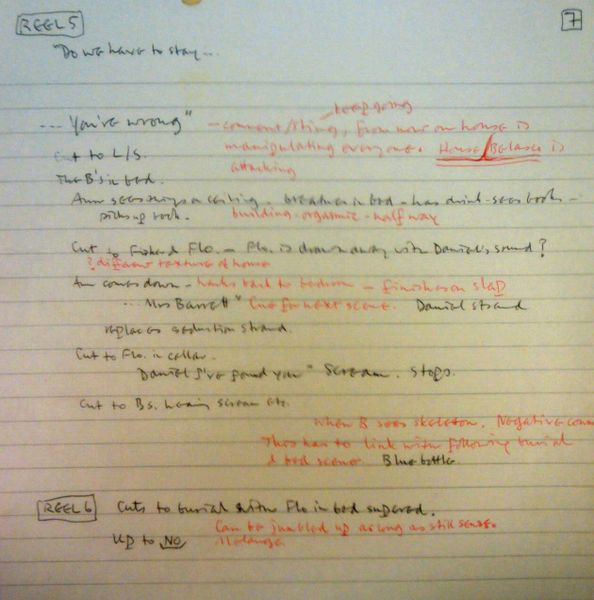 REEL 5
7
"Do we have to stay...
keep going
... You're wrong" - comment/sting, from now on house is
manipulating everyone. House/Belasco is
attacking
Cut to L/S.
The B's in bed.
Ann sees things on ceiling. breathes in bed - has drink - sees book -
picks up book. building - orgasmic - half way
Cut to Fisher & Flo. - Flo. is drawn away with Daniel's sound?
? different texture of house
Ann comes down - back to bedroom - finishes on slap
... Mrs Barrett" Cue for next scene. Daniel strand
replaces seduction strand.
Cut to Flo. in cellar.
Daniel I've found you" Scream. Stops.
Cut to Bs. hearing scream etc.
when B sees skeleton. Negative
This has to link with following burial
& bed scene. Bluebottle.
REEL 6 Cuts to burial with Flo in bed supered.
Can be jumbled up as long as still sense.
Up to NO